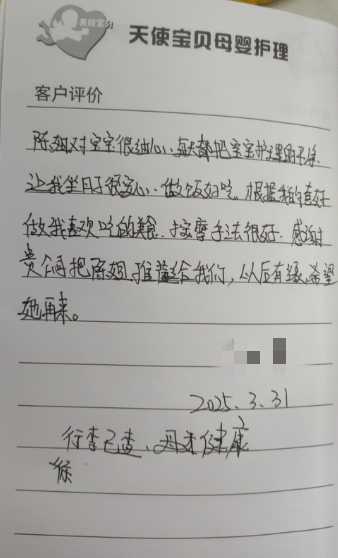 天使宝贝母婴护理
客户评价
陈姐对宝宝很细心，每天都把宝宝护理的干净
让我坐月子很安心、做的饭好吃。根据我的喜好
做我喜欢吃的美食、按摩手法很好、感谢
贵公司把陈姐推荐给我们，以后有缘，希望
她再来。
2025.3.31
行李已查、母婴健康